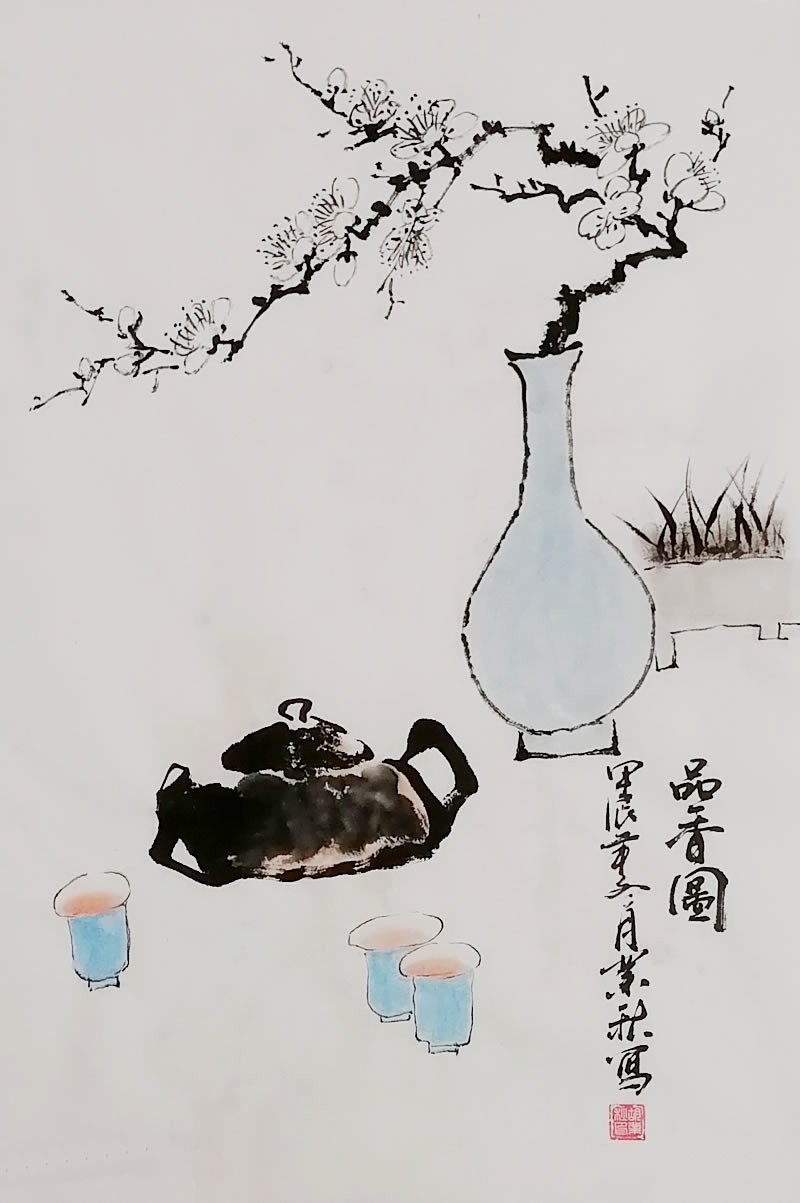 品香圖
甲辰年冬月業秋寫